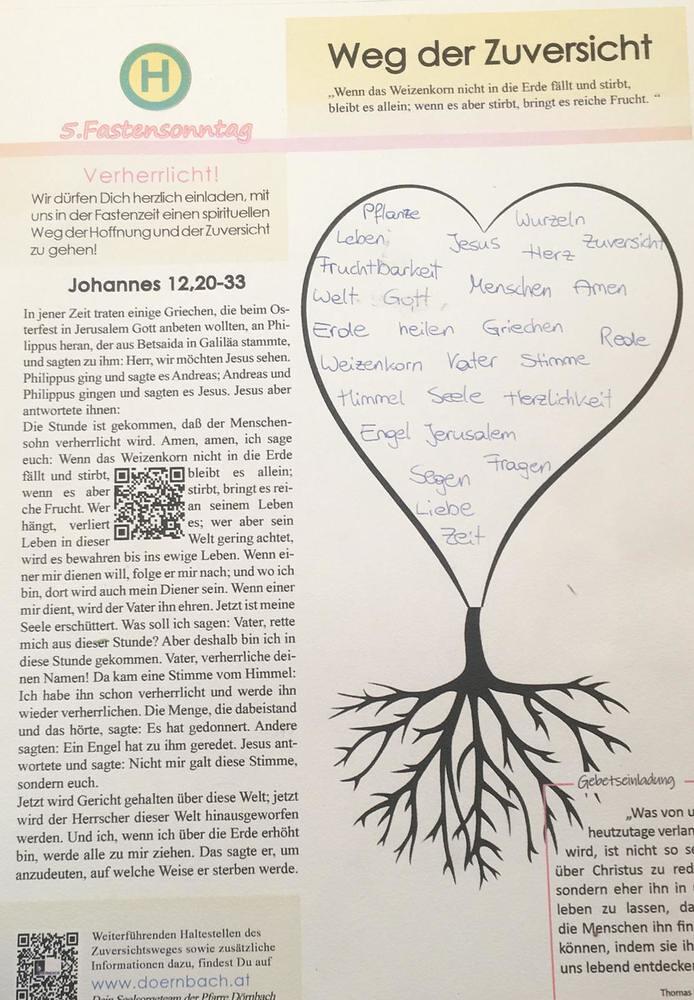 H
5.Fastensonntag
Weg der Zuversicht
„Wenn das Weizenkorn nicht in die Erde fällt und stirbt,
bleibt es allein; wenn es aber stirbt, bringt es reiche Frucht. “
Verherrlicht!
Wir dürfen Dich herzlich einladen, mit
uns in der Fastenzeit einen spirituellen
Weg der Hoffnung und der Zuversicht
zu gehen!
Johannes 12,20-33
In jener Zeit traten einige Griechen, die beim Os-
terfest in Jerusalem Gott anbeten wollten, an Phi-
lippus heran, der aus Betsaida in Galiläa stammte,
und sagten zu ihm: Herr, wir möchten Jesus sehen.
Philippus ging und sagte es Andreas; Andreas und
Philippus gingen und sagten es Jesus. Jesus aber
antwortete ihnen:
Die Stunde ist gekommen, daß der Menschen-
sohn verherrlicht wird. Amen, amen, ich sage
euch: Wenn das Weizenkorn nicht in die Erde
fällt und stirbt, bleibt es allein;
wenn es aber stirbt, bringt es rei-
che Frucht. Wer an seinem Leben
hängt, verliert es; wer aber sein
Leben in dieser Welt gering achtet,
wird es bewahren bis ins ewige Leben. Wenn ei-
ner mir dienen will, folge er mir nach; und wo ich
bin, dort wird auch mein Diener sein. Wenn einer
mir dient, wird der Vater ihn ehren. Jetzt ist meine
Seele erschüttert. Was soll ich sagen: Vater, rette
mich aus dieser Stunde? Aber deshalb bin ich in
diese Stunde gekommen. Vater, verherrliche dei-
nen Namen! Da kam eine Stimme vom Himmel:
Ich habe ihn schon verherrlicht und werde ihn
wieder verherrlichen. Die Menge, die dabeistand
und das hörte, sagte: Es hat gedonnert. Andere
sagten: Ein Engel hat zu ihm geredet. Jesus ant-
wortete und sagte: Nicht mir galt diese Stimme,
sondern euch.
Jetzt wird Gericht gehalten über diese Welt; jetzt
wird der Herrscher dieser Welt hinausgeworfen
werden. Und ich, wenn ich über die Erde erhöht
bin, werde alle zu mir ziehen. Das sagte er, um
anzudeuten, auf welche Weise er sterben werde.
Pflanze Wurzeln
Leben Jesus Herz Zuversicht
Fruchtbarkeit
Welt Gott Menschen Amen
Erde heilen Griechen Rede
Weizenkorn Vater Stimme
Himmel Seele Herzlichkeit
Engel Jerusalem
Segen Fragen
Liebe
Zeit
Gebetseinladung
„Was von u
heutzutage verlan
wird, ist nicht so se
über Christus zu red
sondern eher ihn in
leben zu lassen, da
die Menschen ihn fin
können, indem sie ih
uns lebend entdecke
Thomas
Weiterführenden Haltestellen des
Zuversichtsweges sowie zusätzliche
Informationen dazu, findest Du auf
www.doernbach.at
Dein Seelsorgeteam der Pfarre Dörnbach